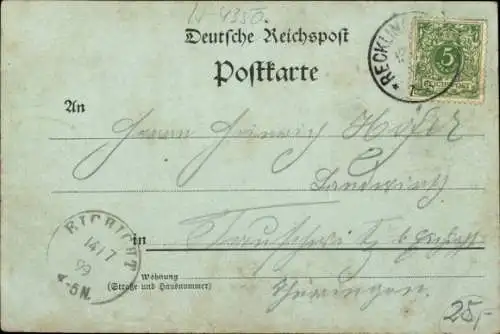 W-4350.
Deutsche Reichspost
Postkarte
*RECKLING
5
REICHSPOST
An
Herrn Heinrich Hofer
Landwirth
in
Wohnung
(Straße und Hausnummer)
Thüringen.
14/7
99
4-5N.
25,-